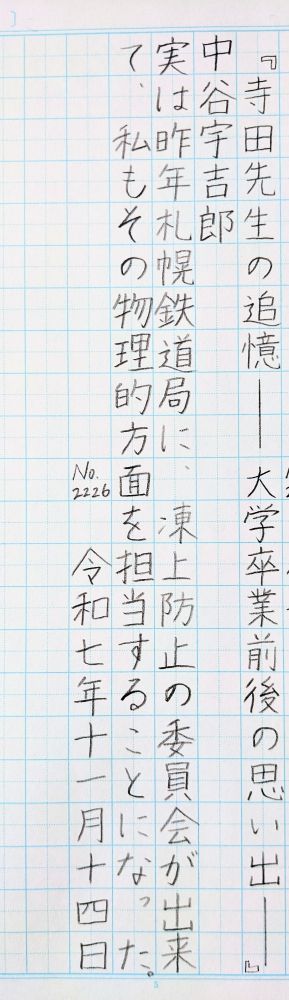 『寺田先生の追憶――大学卒業前後の思い出――』
中谷宇吉郎
実は昨年札幌鉄道局に、凍上防止の委員会が出来
て、私もその物理的方面を担当することになった。
No.2226 令和七年十一月十四日